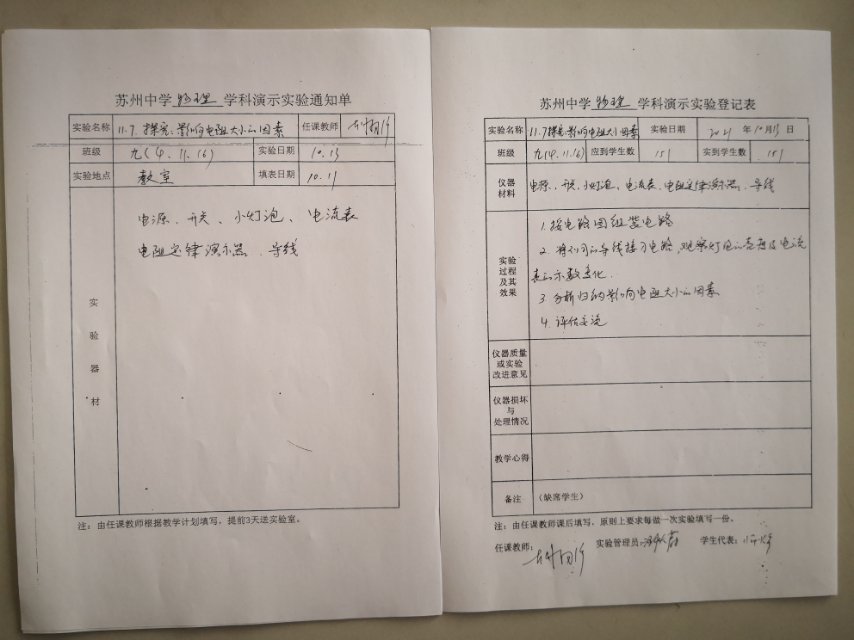 苏州中学 物理 学科演示实验通知单
实验名称 11.7 探究:影响电阻大小的因素 任课教师
班级 九(4.11.16) 实验日期 10.13
实验地点 教室 填表日期 10.11
实验器材
电源、开关、小灯泡、电流表
电阻定律演示器、导线
注:由任课教师根据教学计划填写,提前3天送实验室。
苏州中学 物理 学科演示实验登记表
实验名称 11.7探究:影响电阻大小因素 实验日期 2021 年 10 月 13 日
班级 九(4.11.16) 应到学生数 151 实到学生数 151
仪器材料 电源、开关、小灯泡、电流表、电阻定律演示器、导线
实验过程及其效果
1. 按电路图组装电路
2. 将不同的导线接入电路,观察灯泡的亮度及电流
表的示数变化.
3. 分析归纳影响电阻大小的因素
4. 评估交流
仪器质量或实验改进意见
仪器损坏与处理情况
教学心得
备注 (缺席学生)
注:由任课教师课后填写,原则上要求每做一次实验填写一份。
任课教师: 实验管理员: 学生代表: